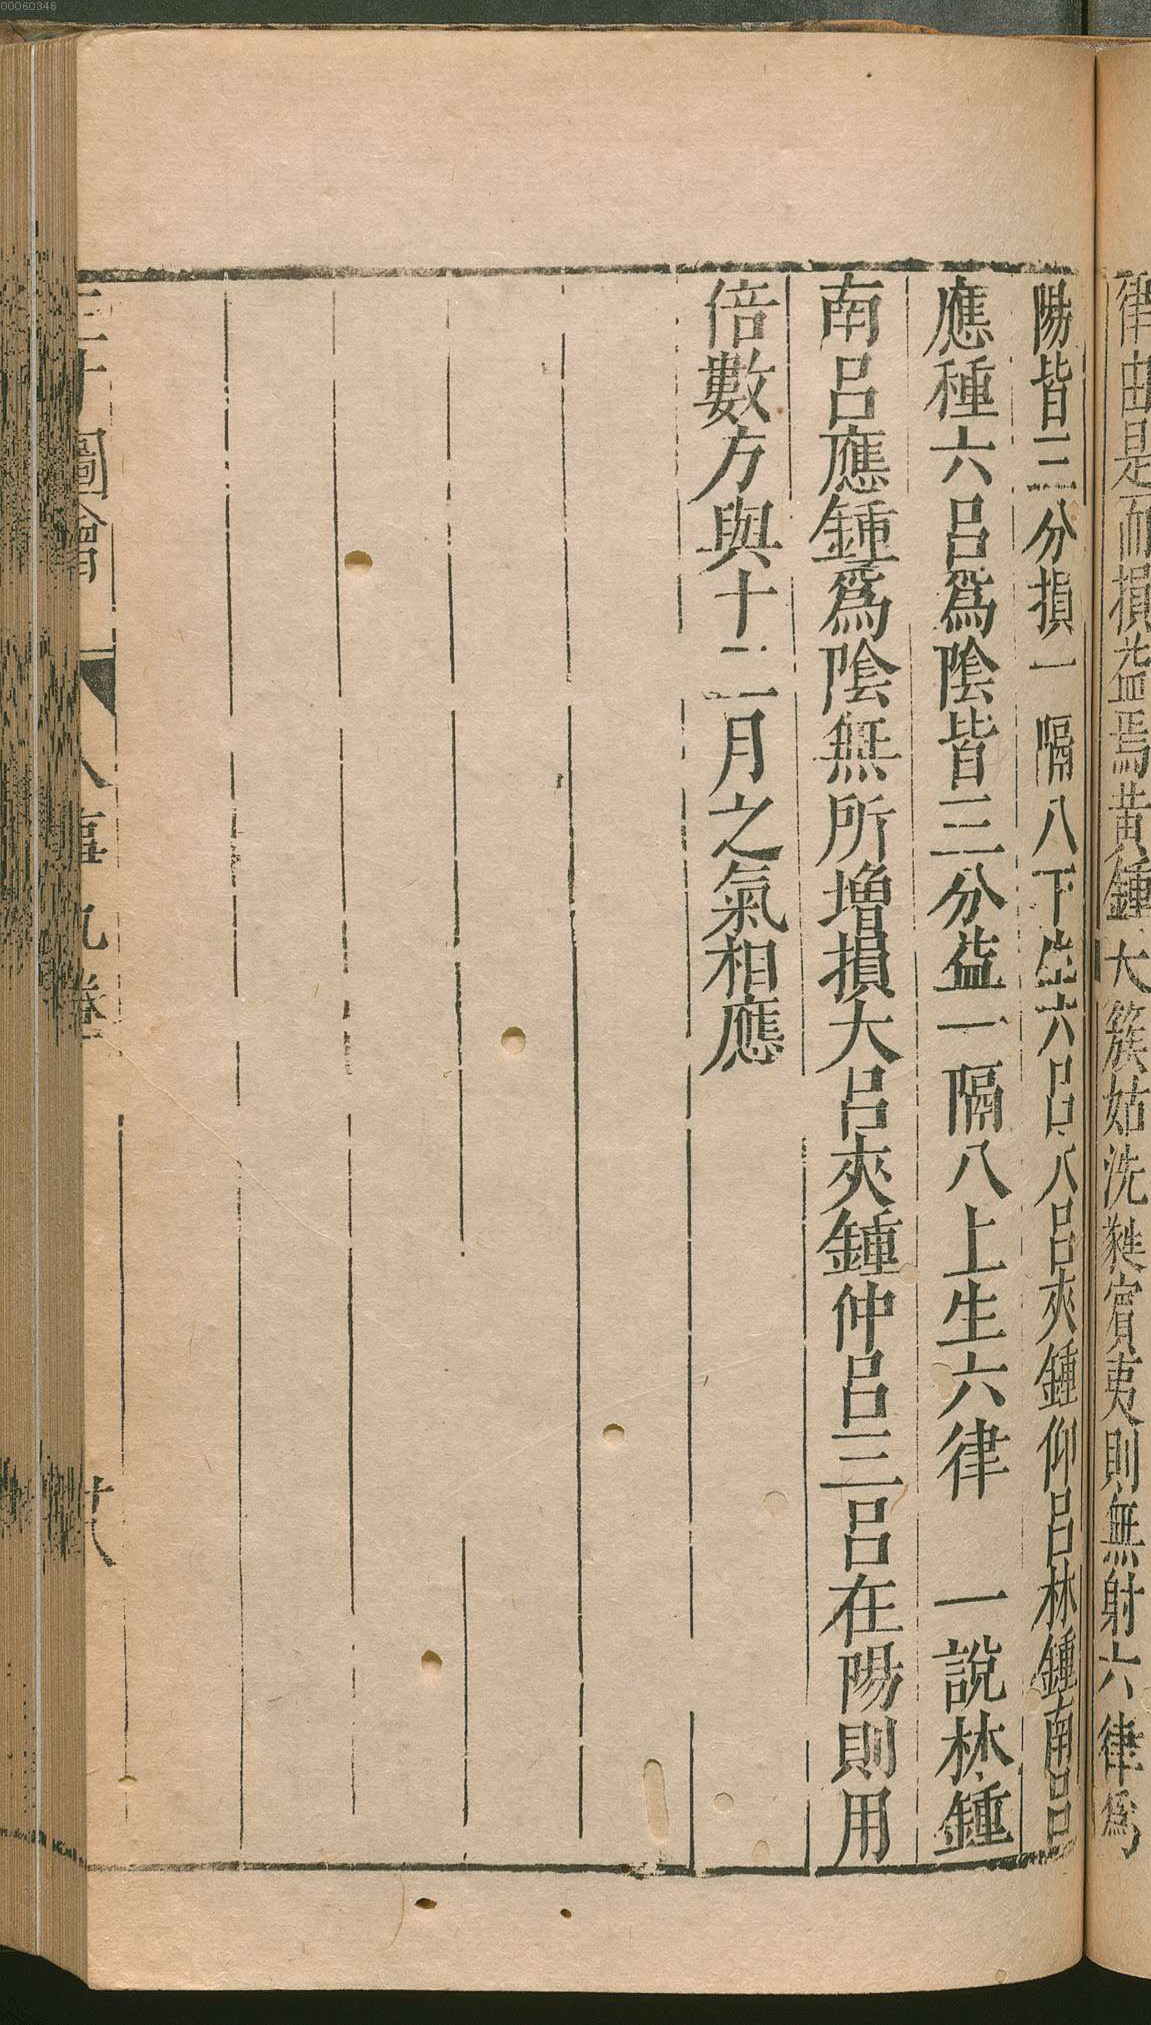 00060346
律由是而損益焉黃鍾大簇姑洗蕤賓夷則無射六律爲
陽皆三分損一隔八下生六呂八呂夾鍾仰呂林鍾南呂
應種六呂爲陰皆三分益一隔八上生六律　一說林鍾
南呂應鍾爲陰無所增損大呂夾鍾仲呂三呂在陽則用
倍數方與十二月之氣相應
三才圖會　人事九卷